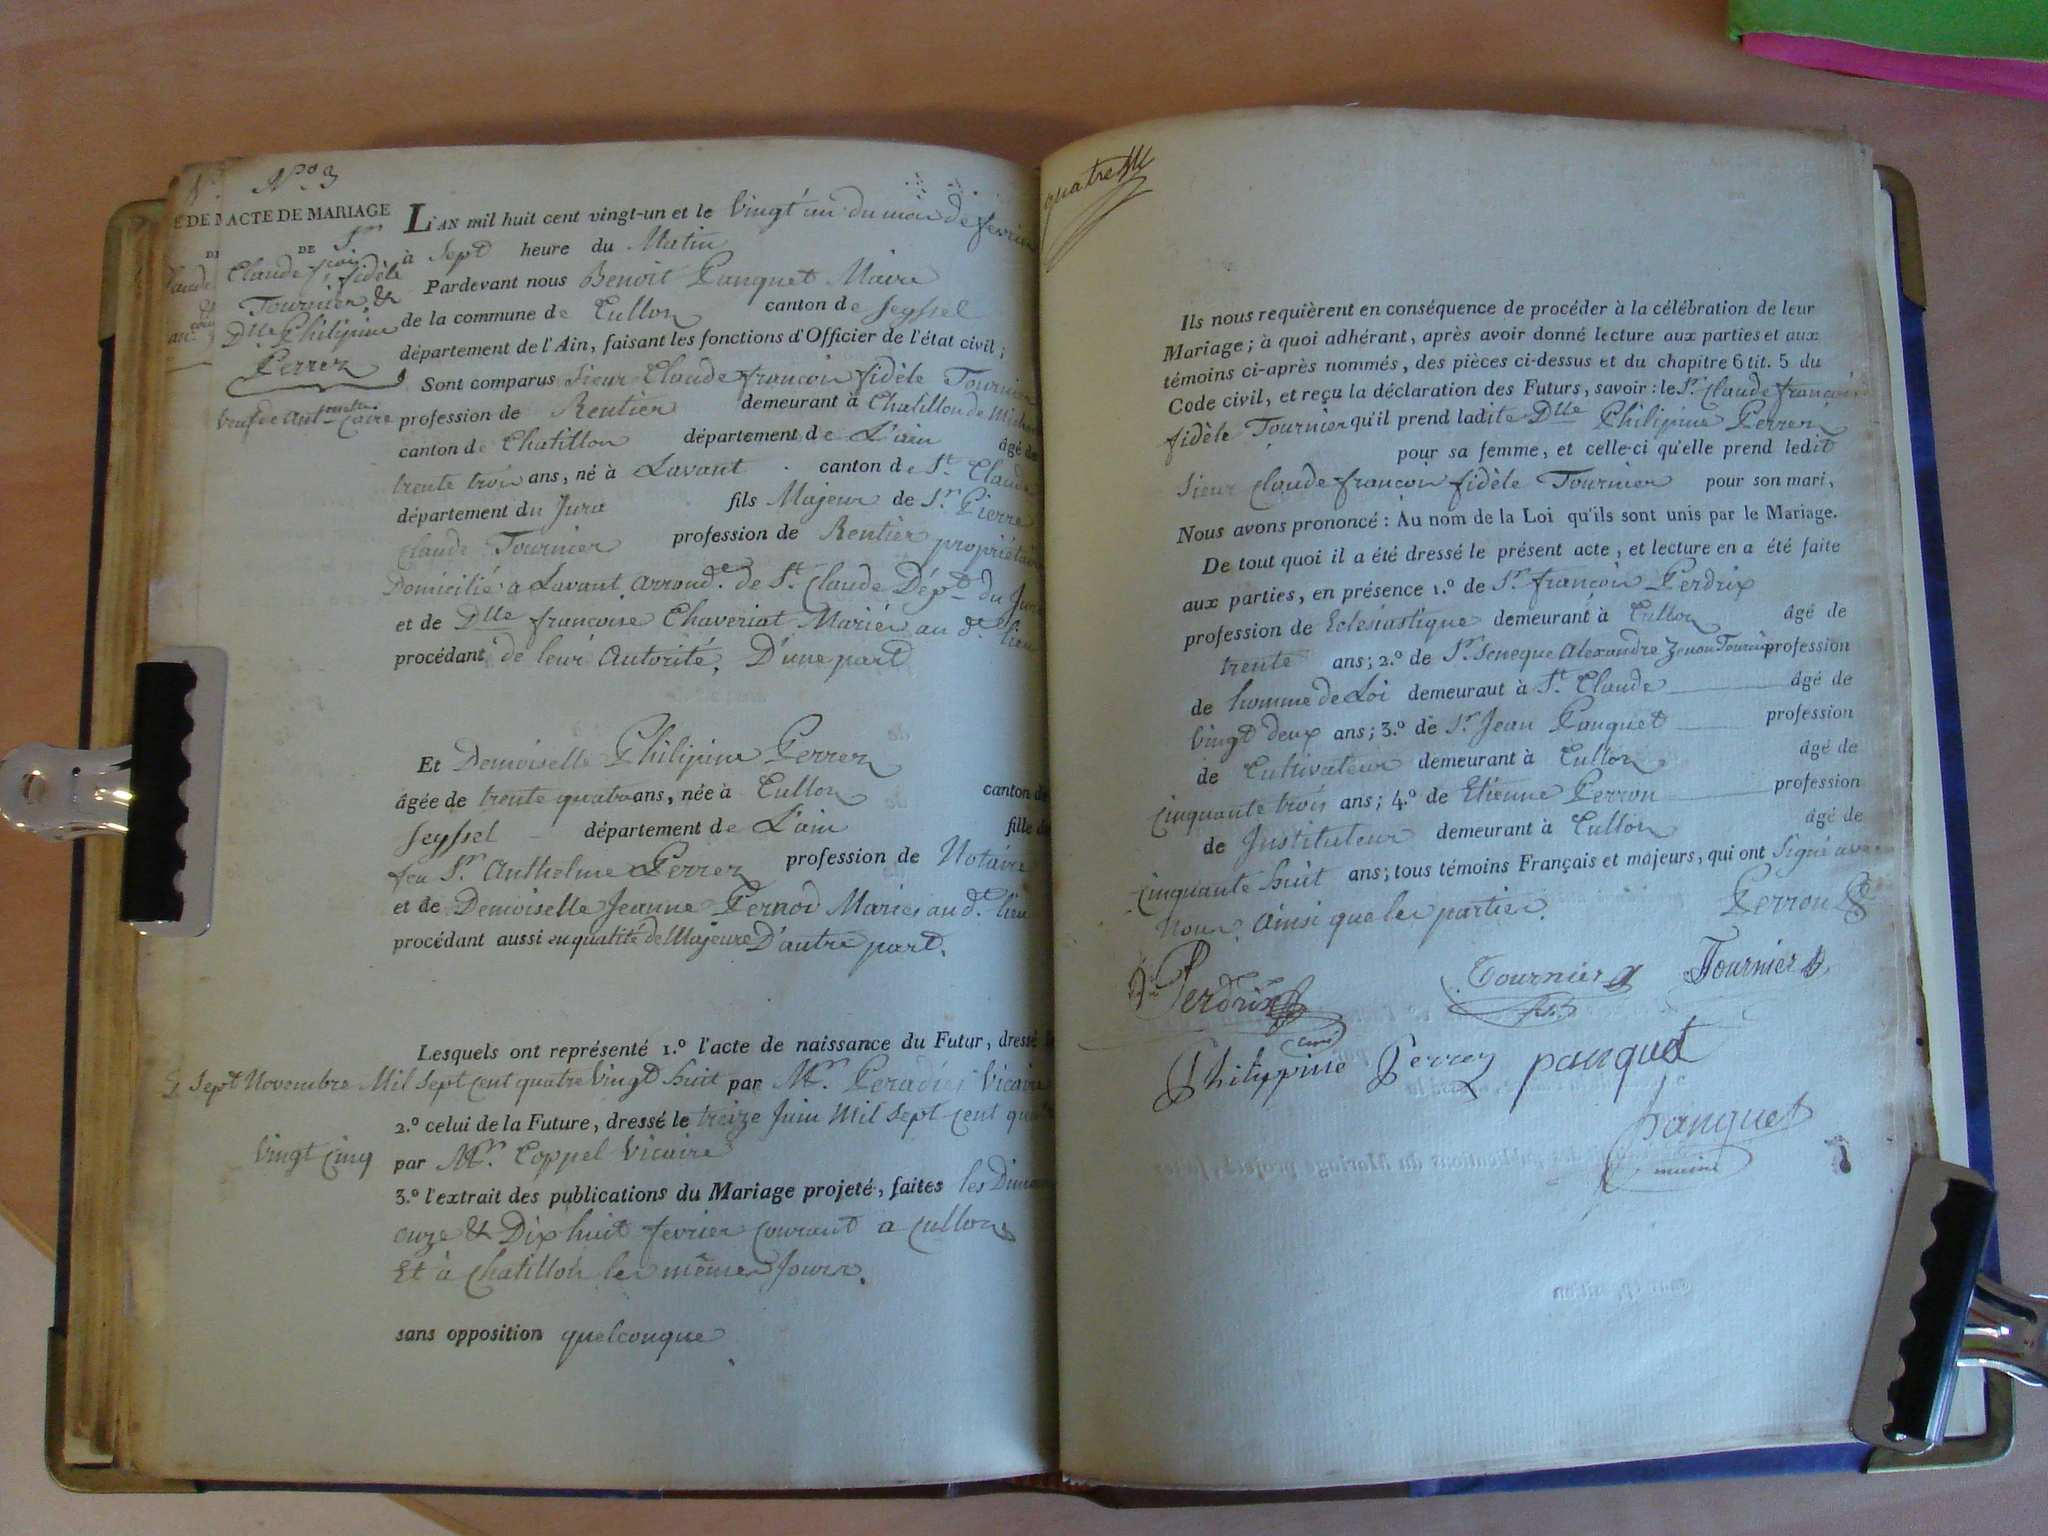 N.º 3
ACTE DE MARIAGE
DE
Sr
Claude fçois
fidèle
Tournier, &
Dlle Philipine
Perren
veuf de Antoinette
Caire
L'AN mil huit cent vingt-un et le vingt un du mois de fevrier
à Sept heure du Matin
Pardevant nous Benoit Panquet Maire
de la commune de Culloz canton de Seyssel
département de l'Ain, faisant les fonctions d'Officier de l'état civil ;
Sont comparus Sieur Claude françois fidèle Tournier
profession de Rentier demeurant à Chatillon de Michaille
canton de Chatillon département de L'ain âgé de
trente trois ans, né à Lavant canton de St. Claude
département du Jura fils Majeur de Sr. Pierre
Claude Tournier profession de Rentier propriétaire
Domicilié a Lavant arrond.t de St. Claude Dépt. du Jura
et de Dlle francoise Chaveriat Mariés au dt. lieu
procédant de leur Autorité, D'une part
Et Demoiselle Philipine Perren
âgée de trente quatre ans, née à Culloz canton de
Seyssel département de L'ain fille de
feu Sr. Anthelme Perren profession de Notaire
et de Demoiselle Jeanne Pernod Mariés au dt. lieu
procédant aussi en qualité de Majeure D'autre part.
Lesquels ont représenté 1.º l'acte de naissance du Futur, dressé le
Sept Novembre Mil Sept cent quatre vingt huit par Mr. Peradier Vicaire
2.º celui de la Future, dressé le treize Juin Mil Sept cent quatre
vingt cinq par Mr. Coppel Vicaire
3.º l'extrait des publications du Mariage projeté, faites les Dimanches
onze & Dix huit fevrier courant a culloz
Et à Chatillon les mêmes Jours.
sans opposition quelconque
quatre
Ils nous requièrent en conséquence de procéder à la célébration de leur
Mariage ; à quoi adhérant, après avoir donné lecture aux parties et aux
témoins ci-après nommés, des pièces ci-dessus et du chapitre 6 tit. 5 du
Code civil, et reçu la déclaration des Futurs, savoir : le Sr. Claude françois
fidèle Tournier qu'il prend ladite Dlle Philipine Perren
pour sa femme, et celle-ci qu'elle prend ledit
Sieur Claude françois fidèle Tournier pour son mari,
Nous avons prononcé : Au nom de la Loi qu'ils sont unis par le Mariage.
De tout quoi il a été dressé le présent acte, et lecture en a été faite
aux parties, en présence 1.º de Sr. françois Perdrix
profession de Eclesiastique demeurant à Culloz âgé de
trente ans ; 2.º de Sr. Seneque Alexandre Zenon Tournier profession
de homme de Loi demeuraut à St. Claude âgé de
vingt deux ans ; 3.º de Sr. Jean Panquet profession
de Cultivateur demeurant à Culloz âgé de
cinquante trois ans ; 4.º de Etienne Perron profession
de Instituteur demeurant à Culloz âgé de
cinquante huit ans ; tous témoins Français et majeurs, qui ont Signé avec
Nous, Ainsi que les parties. Perron
Perdrix Tournier Tournier
Philippine Perren panquet
panquet
maire